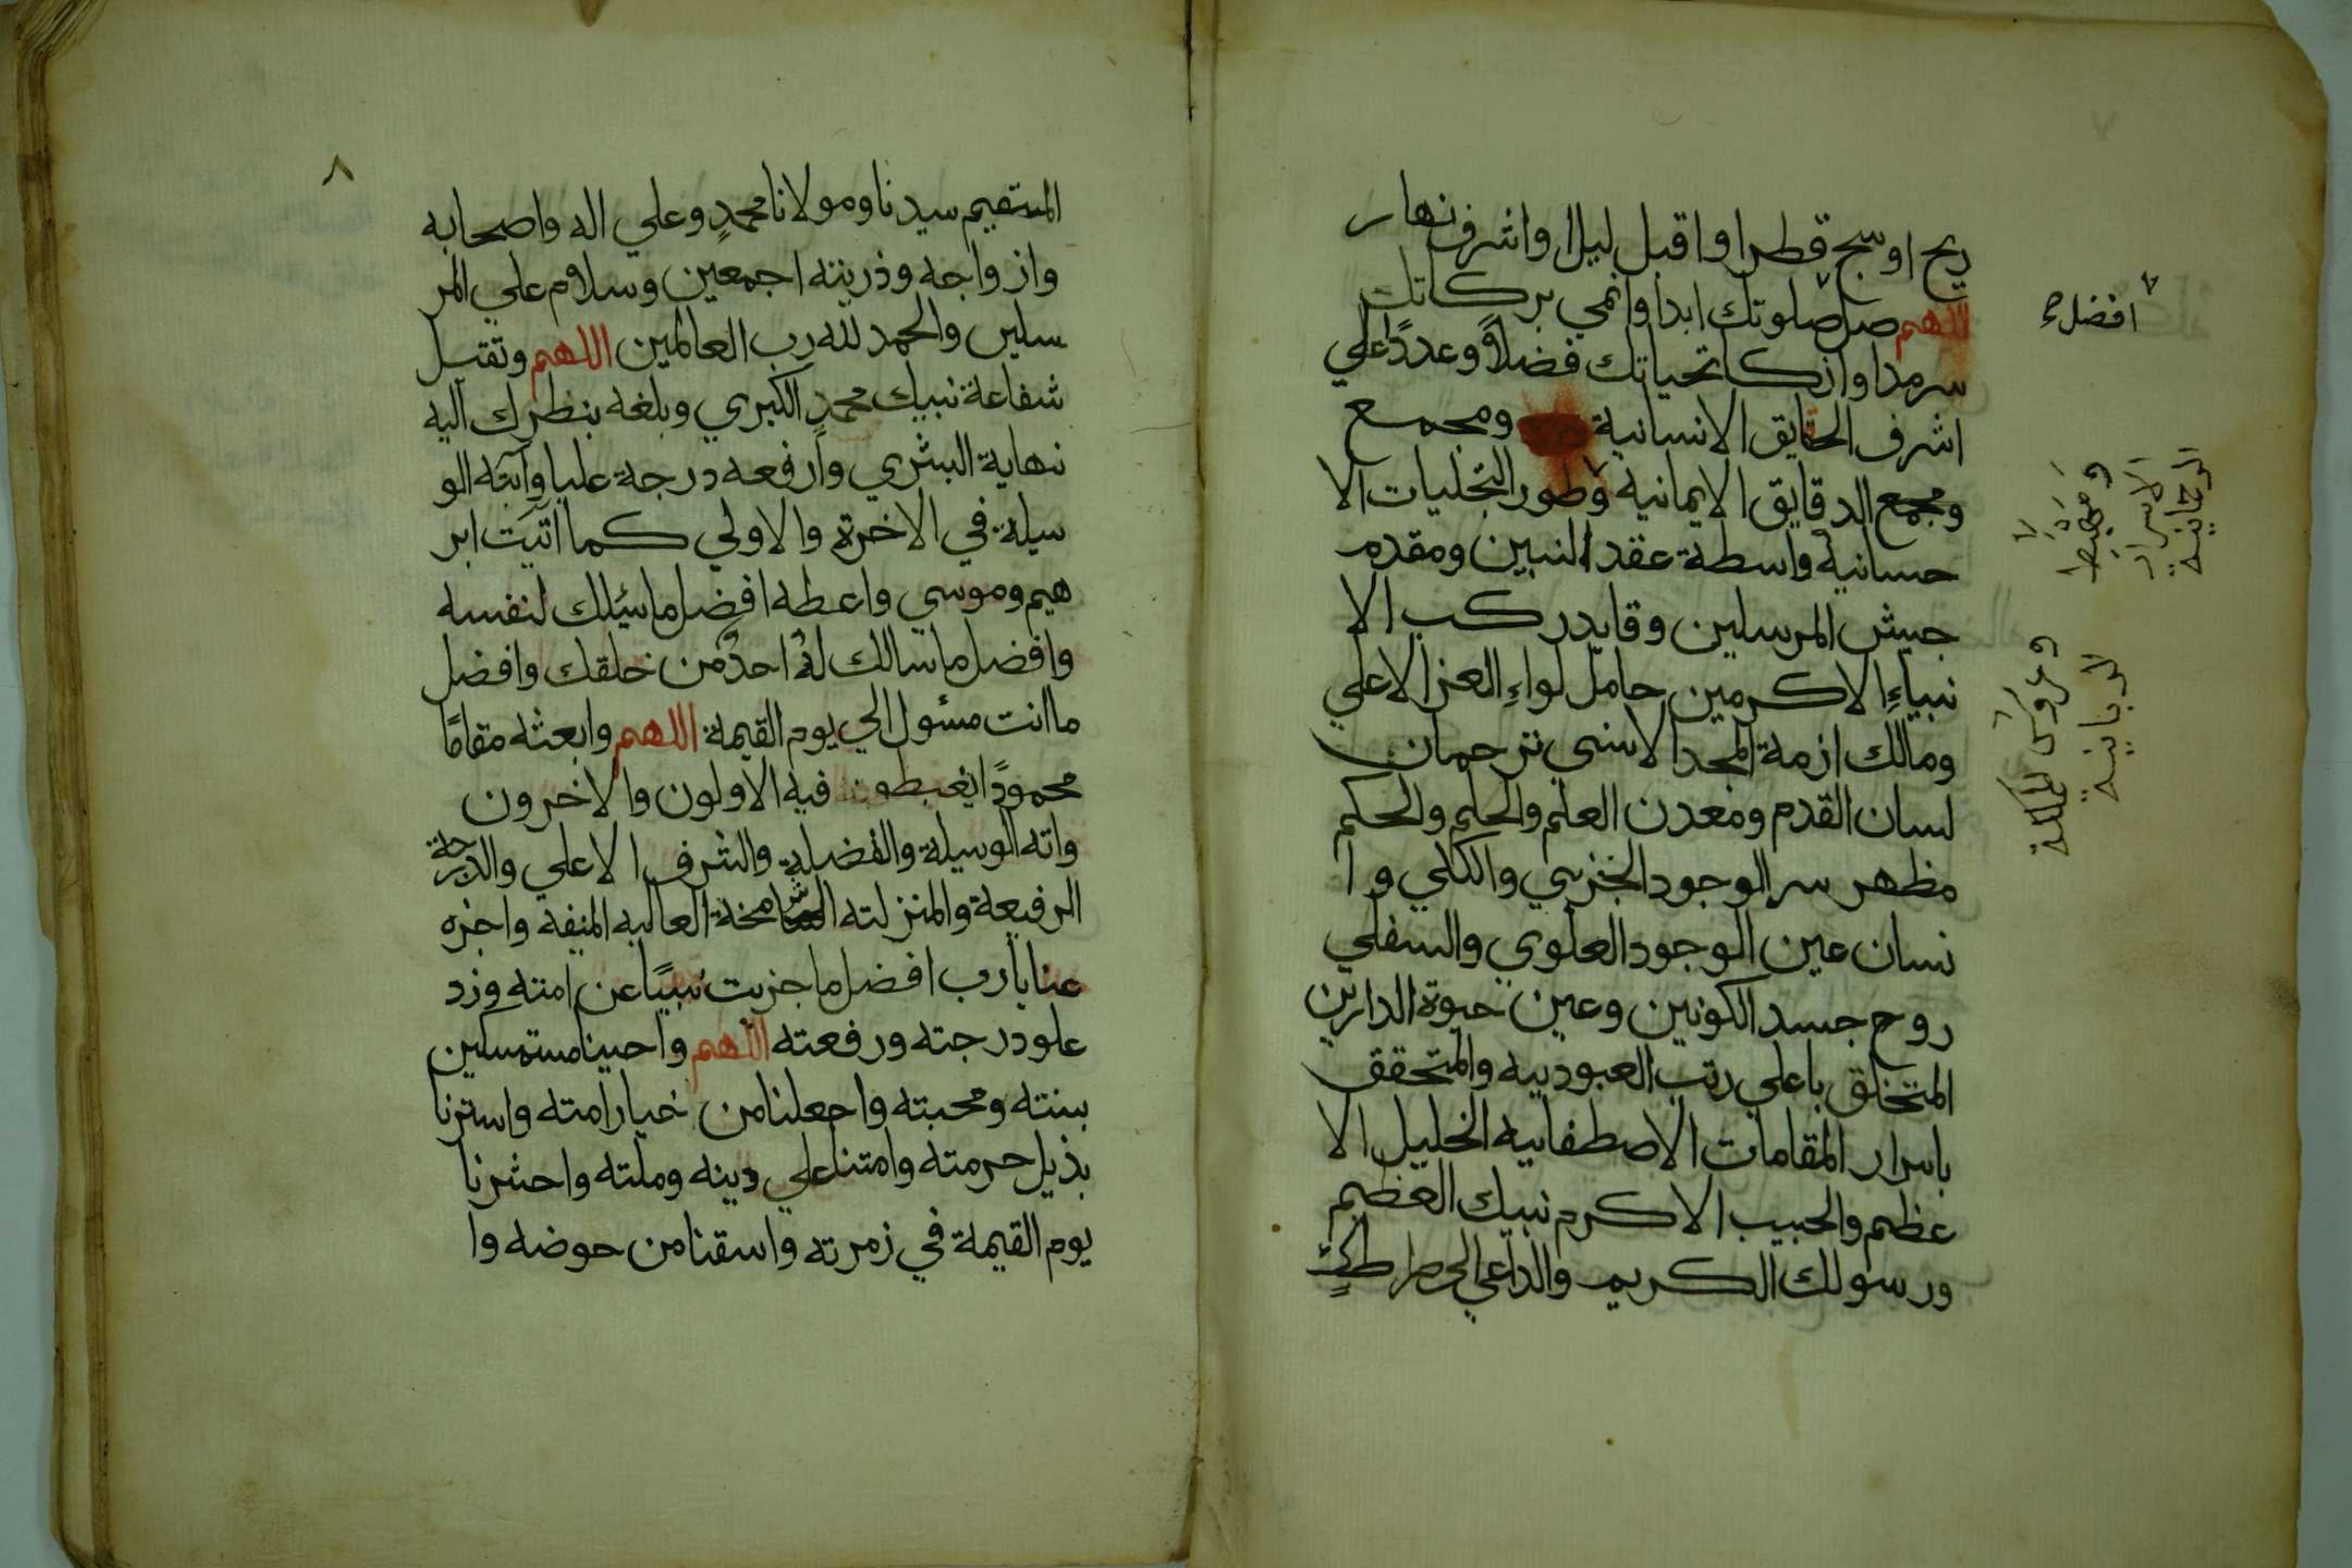 ريح او سج قطرا واقبل ليلا واشرف نهار
اللهم صل صلوتك ابدا وانمي بركاتك
سرمدا وازكا تحياتك فضلاً وعدداً علي
اشرف الحقايق الانسانية ومجمع
ومجمع الدقايق الايمانية وطور التجليات الا
حسانية واسطة عقد النبين ومقدم
جيش المرسلين وقايد ركب الا
نبياءِ الاكرمين حامل لواءِ العز الاعلي
ومالك ازمة المجد الاسني ترجمان
لسان القدم ومعدن العلم والحلم والحكم
مظهر سر الوجود الجزىي والكلي وا
نسان عين الوجود العلوي والسفلي
روح جسد الكونين وعين حيوة الدارين
المتخلق باعلي رتب العبوديه والمتحقق
باسرار المقامات الاصطفاييه الخليل الا
عظم والحبيب الاكرم نبيك العضيم
ورسولك الكريم والداعي الي صراطك
افضل صح
ومهبط
الاسرار
الرحمانية
وعروس المملكة
الربانية
٨
المستقيم سيدنا ومولانا محمدٍ وعلي اله واصحابه
وازواجه وذريته اجمعين وسلام علي المر
سلين والحمد لله رب العالمين اللهم وتقبل
شفاعة نبيك محمدٍ الكبري وبلغه بنظرك اليه
نهاية البشري وارفعه درجة عليا وآته الو
سيلة في الاخرة والاولي كما اتيت ابر
هيم وموسي واعطه افضل ما سئلك لنفسه
وافضل ما سالك لهُ احدٌ من خلقك وافضل
ما انت مسئول الي يوم القيمة اللهم وابعثه مقامًا
محمودًا يغبطون فيه الاولون والاخرون
واته الوسيلة والفضيلة والشرف الاعلي والدرجة
الرفيعة والمنزلته الشامخة العاليه المنيفه واجزه
عنا يا رب افضل ما جزيت نبيًا عن امته وزد
علو درجته ورفعته اللهم واحينا مستمسكين
بسنته ومحبته واجعلنا من خيار امته واسترنا
بذيل حرمته وامتنا علي دينه وملته واحشرنا
يوم القيمة في زمرته واسقنا من حوضه وا